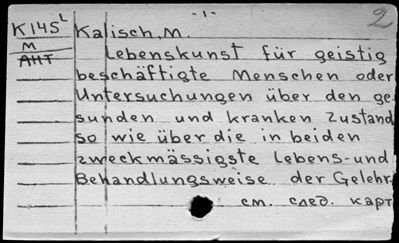 -1-
2
K145L Kalisch, M.
М Lebenskunst für geistig
АНТ beschäftigte Menschen oder
Untersuchungen über den ge
sunden und kranken Zustand
so wie über die in beiden
zweckmässigste Lebens-und
Behandlungsweise der Gelehr
см. след. карт